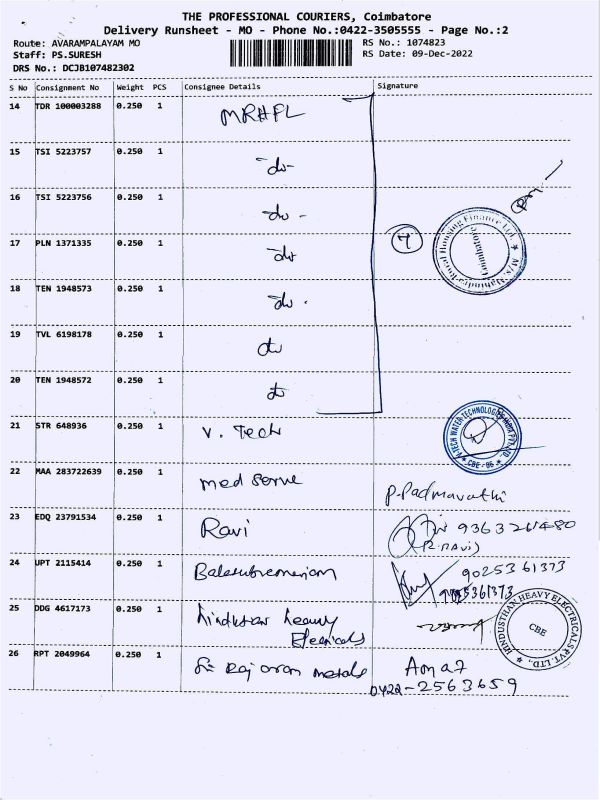 THE PROFESSIONAL COURIERS, Coimbatore
Delivery Runsheet - MO - Phone No.:0422-3505555 - Page No.:2
Route: AVARAMPALAYAM MO RS No.: 1074823
Staff: PS.SURESH RS Date: 09-Dec-2022
DRS No.: DCJB107482302
S No Consignment No Weight PCS Consignee Details Signature
14 TDR 100003288 0.250 1 MRHFL
15 TSI 5223757 0.250 1 -do-
16 TSI 5223756 0.250 1 -do-
17 PLN 1371335 0.250 1 do
7
18 TEN 1948573 0.250 1 do
19 TVL 6198178 0.250 1 do
20 TEN 1948572 0.250 1 do
21 STR 648936 0.250 1 V. Tech
CBE - 06
22 MAA 283722639 0.250 1 med serve P. Padmavathi
23 EDQ 23791534 0.250 1 Ravi
(R. RAVI)
24 UPT 2115414 0.250 1 Balasubramaniam 9025361373
9025361373
25 DDG 4617173 0.250 1 hindustan heavy
Electricals
HINDUSTHAN HEAVY ELECTRICALS PVT. LTD.,
CBE
26 RPT 2049964 0.250 1 Sri Raj metals
0422-2563659